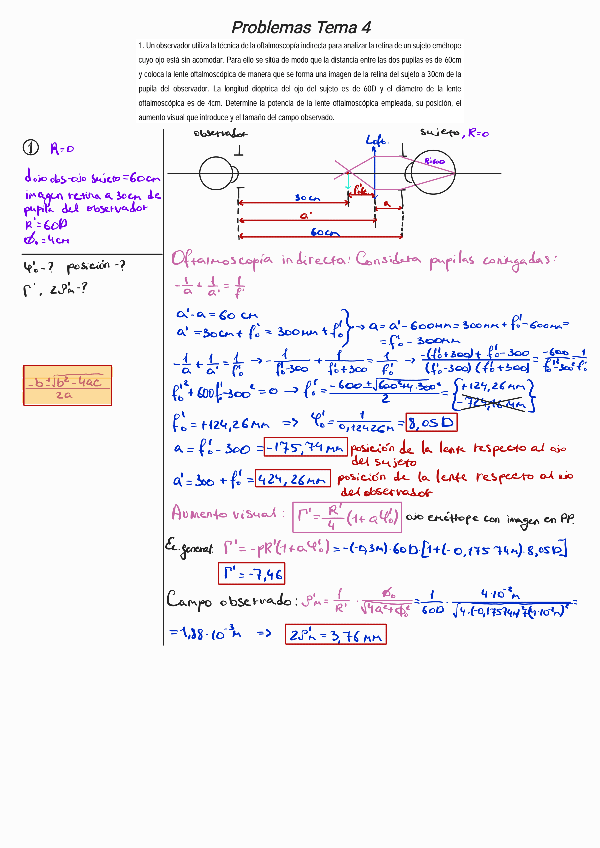 Problemas Tema 4
1. Un observador utiliza la técnica de la oftalmoscopía indirecta para analizar la retina de un sujeto emétrope
cuyo ojo está sin acomodar. Para ello se sitúa de modo que la distancia entre las dos pupilas es de 60cm
y coloca la lente oftalmoscópica de manera que se forma una imagen de la retina del sujeto a 30cm de la
pupila del observador. La longitud dióptrica del ojo del sujeto es de 60D y el diámetro de la lente
oftalmoscópica es de 4cm. Determine la potencia de la lente oftalmoscópica empleada, su posición, el
aumento visual que introduce y el tamaño del campo observado.
① R=0
d ojo obs-ojo sujeto=60cm
imagen retina a 30cm de
pupila del observador
R'=60D
Ø₀=4cm
φ'₀-? posición-?
Γ', 2ρ'м-?
-b±√b²-4ac
2a
observador Loft. sujeto, R=0
R'=60
30cm f'₀ a
a'
60cm
Oftalmoscopía indirecta: Considera pupilas conjugadas:
-1/a + 1/a' = 1/f'
a'-a=60 cm
a'=30cm+f'₀=300mm+f'₀ } → a=a'-600mm=300mm+f'₀-600mm=
=f'₀-300mm
-1/a + 1/a' = 1/f'₀ → -1/(f'₀-300) + 1/(f'₀+300) = 1/f'₀ → (-(f'₀+300)+f'₀-300)/((f'₀-300)(f'₀+300)) = -600/(f'₀²-300²) = 1/f'₀
f'₀²+600f'₀-300²=0 → f'₀=(-600±√600²+4·300²)/2 = {+124,26mm
-724,26mm}
f'₀=+124,26mm ⇒ φ'₀=1/0,12426m=8,05D
a=f'₀-300=-175,74mm posición de la lente respecto al ojo
del sujeto
a'=300+f'₀=424,26mm posición de la lente respecto al ojo
del observador
Aumento visual: Γ'=R'/4(1+aφ'₀) ojo emétrope con imagen en PP.
Ec. general Γ'=-pR'(1+aφ'₀)=-(-0,3m)·60D·[1+(-0,17574m)·8,05D]
Γ'=-7,46
Campo observado: ρ'м=1/R' · Ø₀/√4a²+Ø₀² = 1/60D · 4·10⁻²m/√4·(-0,17574m)²+(4·10⁻²m)² =
=1,88·10⁻³m ⇒ 2ρ'м=3,76mm